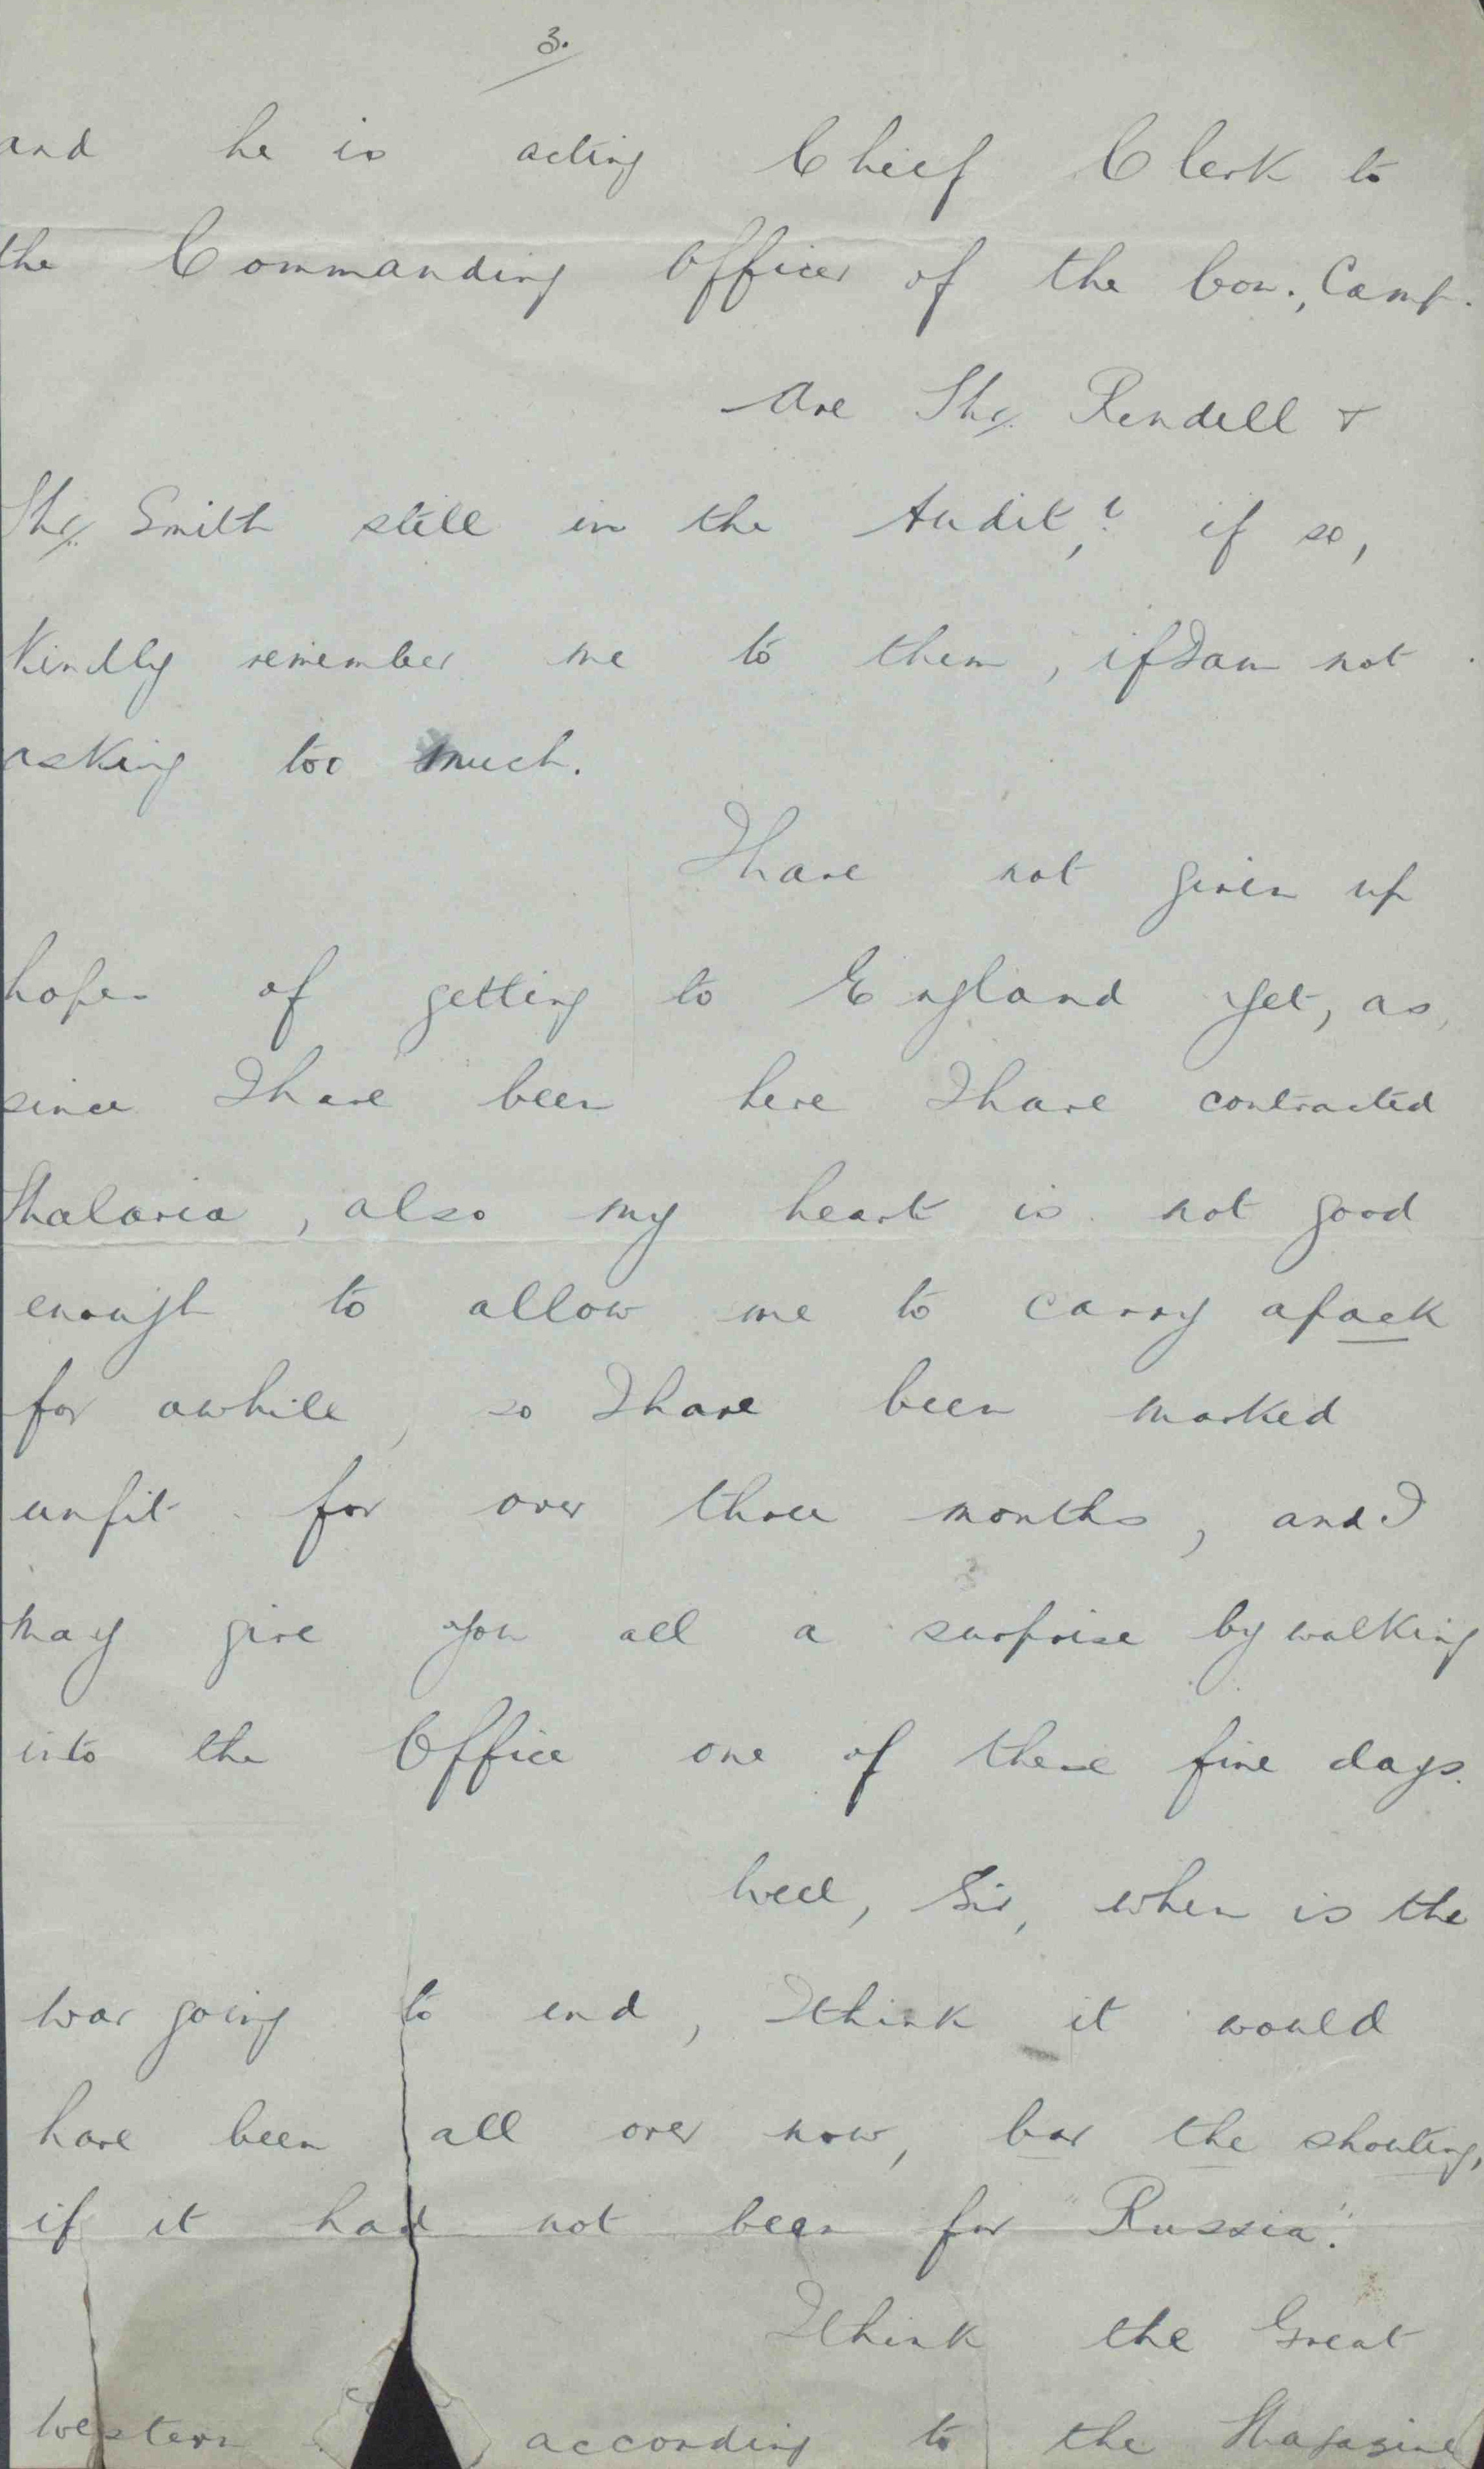 3.
and he is acting Chief Clerk to
the Commanding Officer of the Con., Camp.
Are Mr. Rendell &
Mr. Smith still in the Audit,? if so,
Kindly remember me to them, if I am not
asking too much.
I have not given up
hopes of getting to England yet, as,
since I have been here I have contracted
Malaria, also my heart is not good
enough to allow me to carry a pack
for awhile, so I have been marked
unfit for over three months, and I
may give you all a surprise by walking
into the Office one of these fine days.
Well, Sir, when is the
war going to end, I think it would
have been all over now, bar the shouting,
if it had not been for "Russia".
I think the Great
Western according to the Magazine